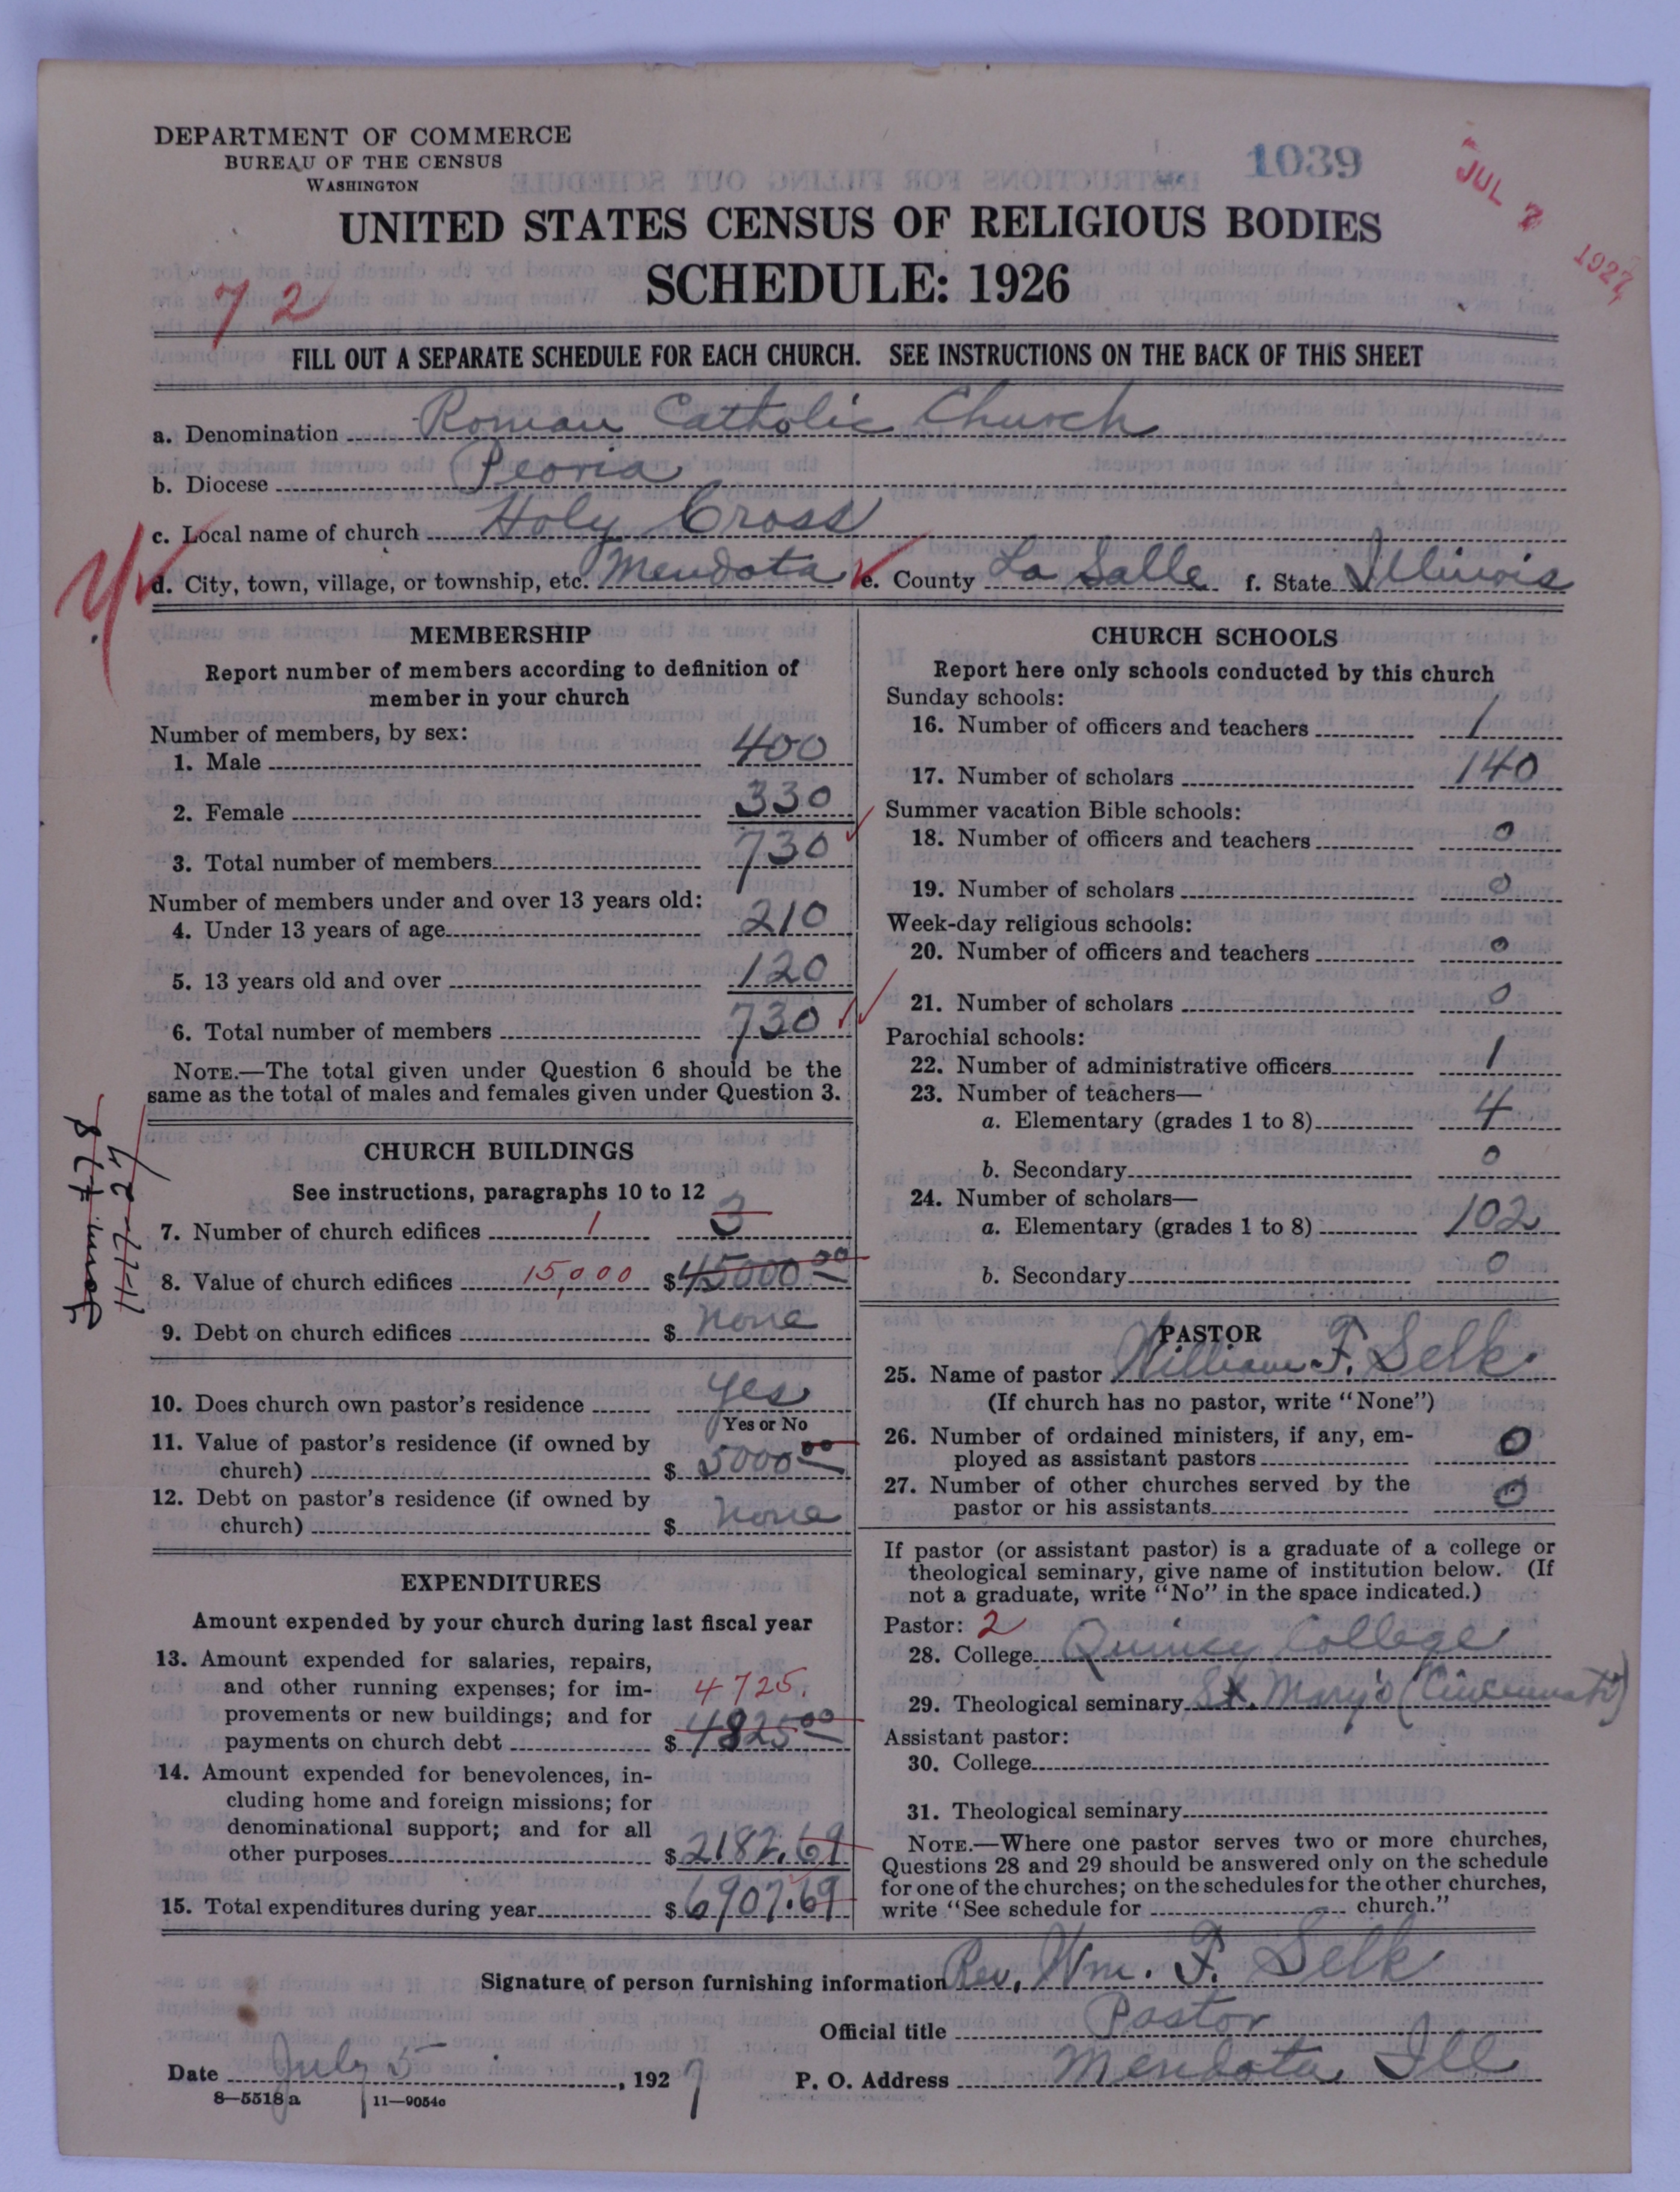 DEPARTMENT OF COMMERCE
BUREAU OF THE CENSUS
WASHINGTON
1039
JUL 7 1927
UNITED STATES CENSUS OF RELIGIOUS BODIES
SCHEDULE: 1926
72
FILL OUT A SEPARATE SCHEDULE FOR EACH CHURCH. SEE INSTRUCTIONS ON THE BACK OF THIS SHEET
a. Denomination Roman Catholic Church
b. Diocese Peoria
c. Local name of church Holy Cross
d. City, town, village, or township, etc. Mendota e. County La Salle f. State Illinois
MEMBERSHIP
Report number of members according to definition of
member in your church
Number of members, by sex:
1. Male 400
2. Female 330
3. Total number of members 730
Number of members under and over 13 years old:
4. Under 13 years of age 210
5. 13 years old and over 120
6. Total number of members 730
NOTE.—The total given under Question 6 should be the
same as the total of males and females given under Question 3.
Form 478
11-7-27
CHURCH BUILDINGS
See instructions, paragraphs 10 to 12
7. Number of church edifices 1 3
8. Value of church edifices 15,000 $45000.00
9. Debt on church edifices $ None
10. Does church own pastor's residence Yes
Yes or No
11. Value of pastor's residence (if owned by
church) $ 5000.00
12. Debt on pastor's residence (if owned by
church) $ None
EXPENDITURES
Amount expended by your church during last fiscal year
13. Amount expended for salaries, repairs,
and other running expenses; for im-
provements or new buildings; and for
payments on church debt 4725. $ 4825.00
14. Amount expended for benevolences, in-
cluding home and foreign missions; for
denominational support; and for all
other purposes $ 2182.69
15. Total expenditures during year $ 6907.69
CHURCH SCHOOLS
Report here only schools conducted by this church
Sunday schools:
16. Number of officers and teachers 1
17. Number of scholars 140
Summer vacation Bible schools:
18. Number of officers and teachers 0
19. Number of scholars 0
Week-day religious schools:
20. Number of officers and teachers 0
21. Number of scholars 0
Parochial schools:
22. Number of administrative officers 1
23. Number of teachers—
a. Elementary (grades 1 to 8) 4
b. Secondary 0
24. Number of scholars—
a. Elementary (grades 1 to 8) 102
b. Secondary 0
PASTOR
25. Name of pastor William F. Selk
(If church has no pastor, write "None")
26. Number of ordained ministers, if any, em-
ployed as assistant pastors 0
27. Number of other churches served by the
pastor or his assistants 0
If pastor (or assistant pastor) is a graduate of a college or
theological seminary, give name of institution below. (If
not a graduate, write "No" in the space indicated.)
Pastor: 2
28. College Quincy College
29. Theological seminary St. Mary's (Cincinnati)
Assistant pastor:
30. College
31. Theological seminary
NOTE.—Where one pastor serves two or more churches,
Questions 28 and 29 should be answered only on the schedule
for one of the churches; on the schedules for the other churches,
write "See schedule for church."
Signature of person furnishing information Rev. Wm. F. Selk
Official title Pastor
Date July 5, 1927 P. O. Address Mendota Ill
8—5518 a 11—9054o